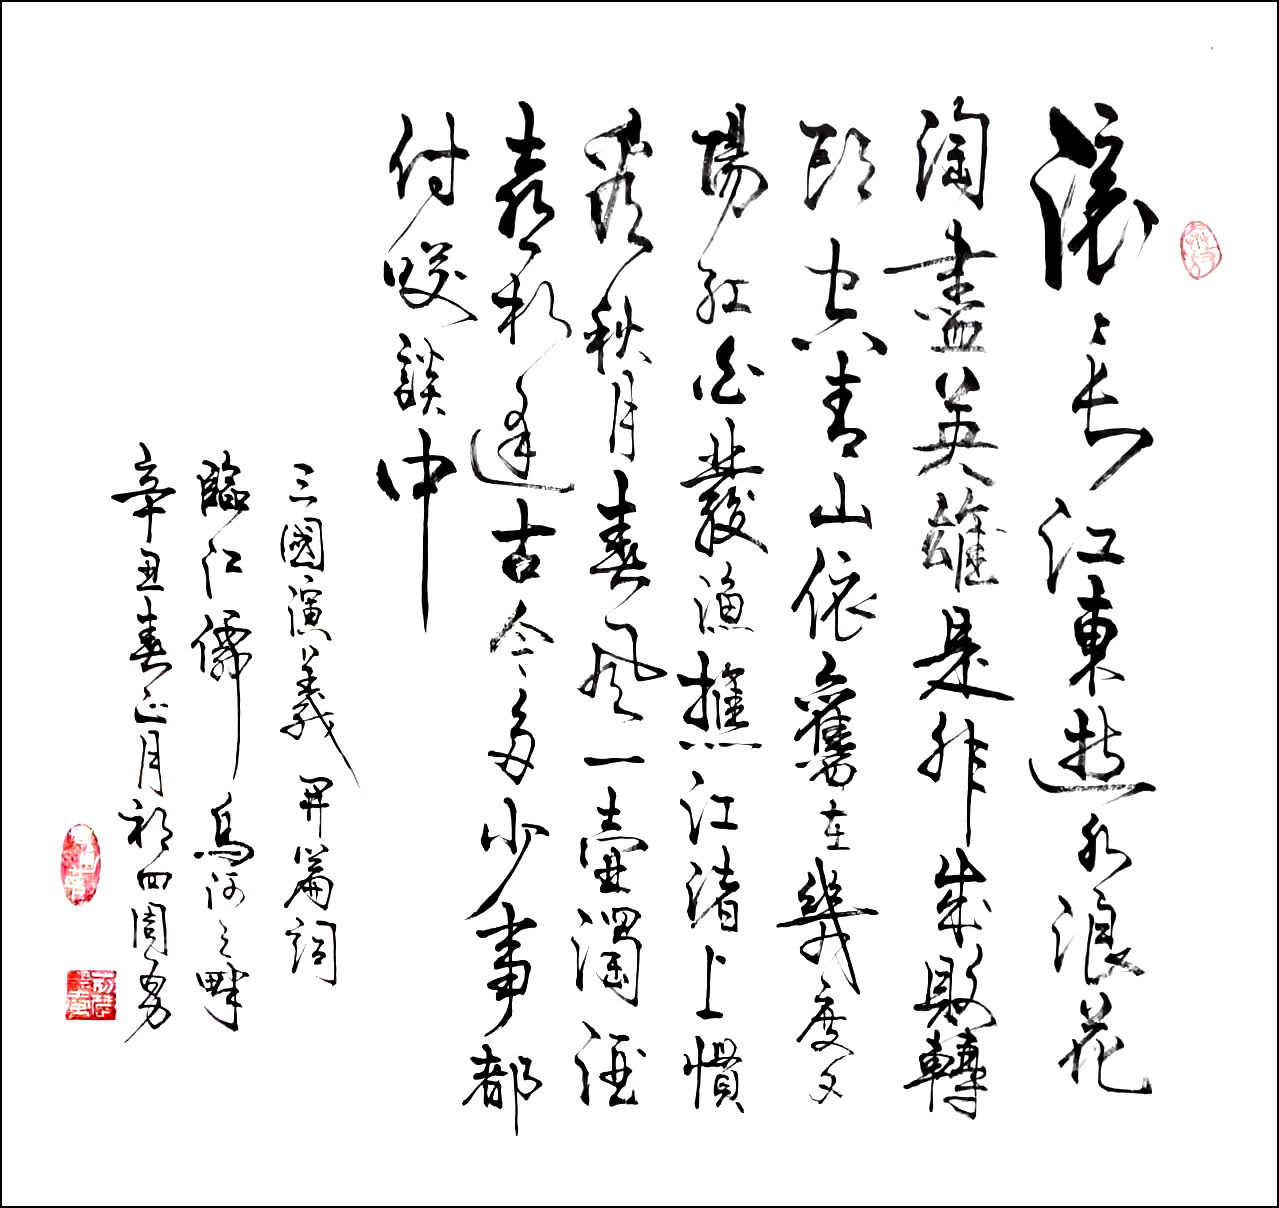 滚〻長江東逝水浪花
淘盡英雄是非成敗轉
頭空青山依舊在幾度夕
陽紅白髮漁樵江渚上慣
看秋月春風一壺濁酒
喜相逢古今多少事都
付咲談中
三國演義開篇詞
臨江僊 烏河之畔
辛丑春正月初四周勇